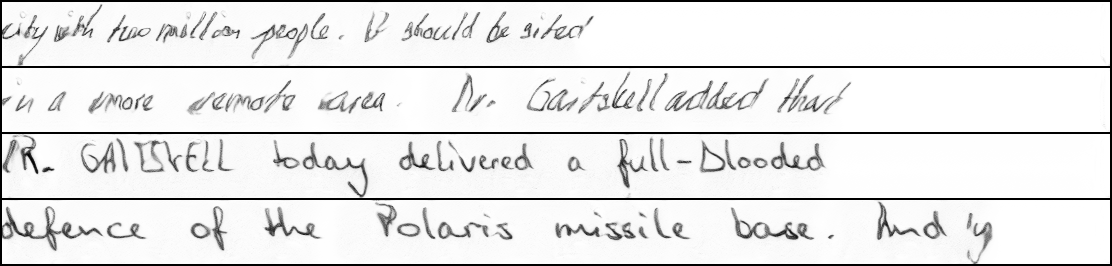 city with two million people. It should be sited
in a more remote area. Dr. Gaitskell added that
MR. GAITSKELL today delivered a full-blooded
defence of the Polaris missile base. And